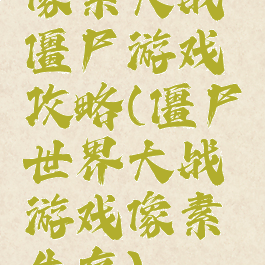 像素大战
僵尸游戏
攻略(僵尸
世界大战
游戏像素